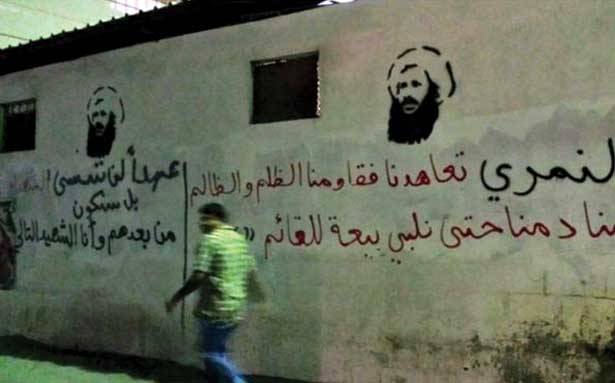 النمري تعاهدنا فقاومنا الظلم والظالم
دمنا حتى نلبي بيعة للقائم
عهداً لن ننسى
بل سنكون
من بعدهم وأنا الشهيد التالي